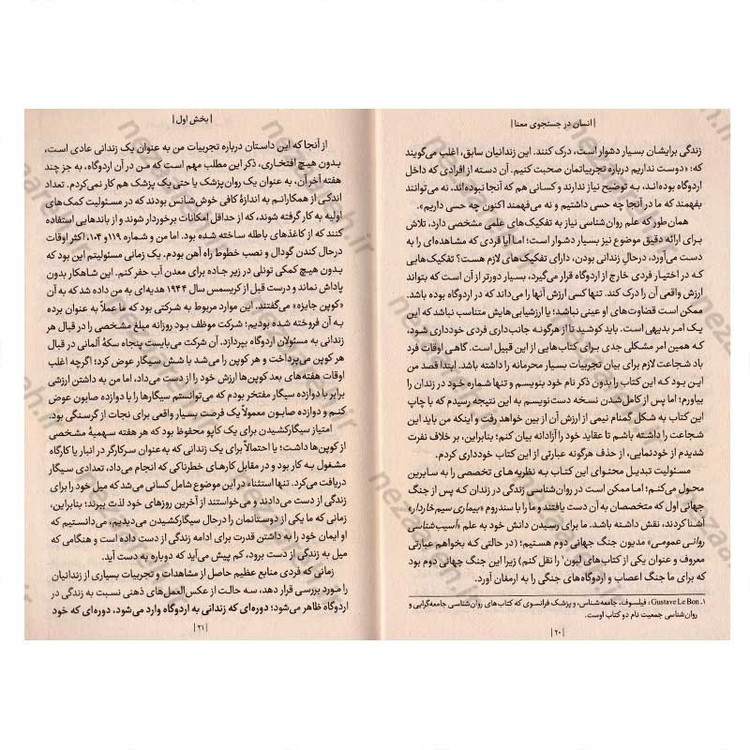 | انسان در جستجوی معنا |
زندگی برایشان بسیار دشوار است، درک کنند. این زندانیان سابق، اغلب می‌گویند
که: «دوست نداریم درباره تجربیاتمان صحبت کنیم. آن دسته از افرادی که داخل
اردوگاه بوده‌اند، به توضیح نیاز ندارند و کسانی هم که آنجا نبوده‌اند، نه می‌توانند
بفهمند که ما در آنجا چه حسی داشتیم و نه می‌فهمند اکنون چه حسی داریم».
همان‌طور که علم روان‌شناسی نیاز به تفکیک‌های علمی مشخصی دارد، تلاش
برای ارائه دقیق موضوع نیز بسیار دشوار است؛ اما آیا فردی که مشاهده‌ای را به
دست می‌آورد، درحال زندانی بودن، دارای تفکیک‌های لازم هست؟ تفکیک‌هایی
که در اختیار فردی خارج از اردوگاه قرار می‌گیرد، بسیار دورتر از آن است که بتواند
ارزش واقعی آن را درک کند. تنها کسی ارزش آنها را می‌داند که در اردوگاه بوده باشد.
ممکن است قضاوت‌های او عینی نباشد؛ یا ارزشیابی‌هایش متناسب نباشد که این
یک امر بدیهی است. باید کوشید تا از هرگونه جانب‌داری فردی خودداری شود،
که همین امر مشکلی جدی برای کتاب‌هایی از این قبیل است. گاهی اوقات فرد
باد شجاعت لازم برای بیان تجربیات بسیار محرمانه را داشته باشد. ابتدا قصد من
این بود که این کتاب را بدون ذکر نام خود بنویسم و تنها شماره خود در زندان را
بیاورم؛ اما پس از کامل‌شدن نسخه دست‌نویسم به این نتیجه رسیدم که با چاپ
این کتاب به شکل گمنام نیمی از ارزش آن از بین خواهد رفت و اینکه من باید این
شجاعت را داشته باشم تا عقاید خود را آزادانه بیان کنم؛ بنابراین، بر خلاف نفرت
شدیدم از خودنمایی، از حذف هرگونه عبارتی از این کتاب خودداری کردم.
مسئولیت تبدیل محتوای این کتاب به نظریه‌های تخصصی را به سایرین
محول می‌کنم؛ اما ممکن است در روان‌شناسی زندگی در زندان که پس از جنگ
جهانی اول که متخصصان به آن دست یافتند و ما را با سندروم «بیماری سیم‌خاردار»
آشنا کردند، نقش داشته باشد. ما برای رسیدن دانش خود به علم «آسیب‌شناسی
روانی عمومی» مدیون جنگ جهانی دوم هستیم؛ (در حالتی که بخواهم عبارتی
معروف و عنوان یکی از کتاب‌های لبون۱ را نقل کنم) زیرا این جنگ جهانی دوم بود
که برای ما جنگ اعصاب و اردوگاه‌های جنگی را به ارمغان آورد.
۱. Gustave Le Bon، فیلسوف، جامعه‌شناس، و پزشک فرانسوی که کتاب‌های روان‌شناسی جامعه‌گرایی و
روان‌شناسی جمعیت نام دو کتاب اوست.
| ۲۰ |
| بخش اول |
از آنجا که این داستان درباره تجربیات من به عنوان یک زندانی عادی است،
بدون هیچ افتخاری، ذکر این مطلب مهم است که من در آن اردوگاه، به جز چند
هفته آخر آن، به عنوان یک روان‌پزشک یا حتی یک پزشک هم کار نمی‌کردم. تعداد
اندکی از همکارانم به اندازهٔ کافی خوش‌شانس بودند که در مسئولیت کمک‌های
اولیه به کار گرفته شوند، که از حداقل امکانات برخوردار شوند و از باندهایی استفاده
کنند که از کاغذهای باطله ساخته شده بود. اما من و شماره ۱۱۹ و ۱۰۴، اکثر اوقات
درحال کندن گودال و نصب خطوط راه آهن بودم. یک زمانی مسئولیتم این بود که
بدون هیچ کمکی تونلی در زیر جاده برای معدن آب حفر کنم. این شاهکار بدون
پاداش نماند و درست قبل از کریسمس سال ۱۹۴۴ هدیه‌ای به من داده شد که به آن
«کوپن جایزه» می‌گفتند. این موارد مربوط به شرکتی بود که ما عملاً به عنوان برده
به آن فروخته شده بودیم؛ شرکت موظف بود روزانه مبلغ مشخصی را در قبال هر
زندانی به مسئولان اردوگاه بپردازد. آن شرکت می‌بایست پنجاه سکهٔ آلمانی در قبال
هر کوپن می‌پرداخت و هر کوپن را می‌شد با شش سیگار عوض کرد؛ اگرچه اغلب
اوقات هفته‌های بعد کوپن‌ها ارزش خود را از دست می‌داد، اما من به داشتن ارزشی
برابر با دوازده سیگار مفتخر بودم که می‌توانستم سیگارها را با دوازده صابون عوض
کنم و دوازده صابون معمولاً یک فرصت بسیار واقعی برای نجات از گرسنگی بود.
امتیاز سیگارکشیدن برای یک کاپو محفوظ بود که هر هفته سهمیهٔ مشخصی
از کوپن‌ها داشت؛ یا احتمالاً برای یک زندانی که به‌عنوان سرکارگر در انبار یا کارگاه
مشغول به کار بود و در مقابل کارهای خطرناکی که انجام می‌داد، تعدادی سیگار
دریافت می‌کرد. تنها استثناء در این موضوع شامل کسانی می‌شد که میل خود را برای
زندگی از دست می‌دادند و می‌خواستند از آخرین روزهای خود لذت ببرند؛ بنابراین،
زمانی که ما یکی از دوستانمان را درحال سیگارکشیدن می‌دیدیم، می‌دانستیم که
او ایمان خود را به داشتن قدرت برای ادامه زندگی از دست داده است و هنگامی که
میل به زندگی از دست برود، کم پیش می‌آید که دوباره به دست آید.
زمانی که فردی منابع عظیم حاصل از مشاهدات و تجربیات بسیاری از زندانیان
را مورد بررسی قرار دهد، سه حالت از عکس‌العمل‌های ذهنی نسبت به زندگی در
اردوگاه ظاهر می‌شود؛ دوره‌ای که زندانی به اردوگاه وارد می‌شود، دوره‌ای که خود
| ۲۱ |